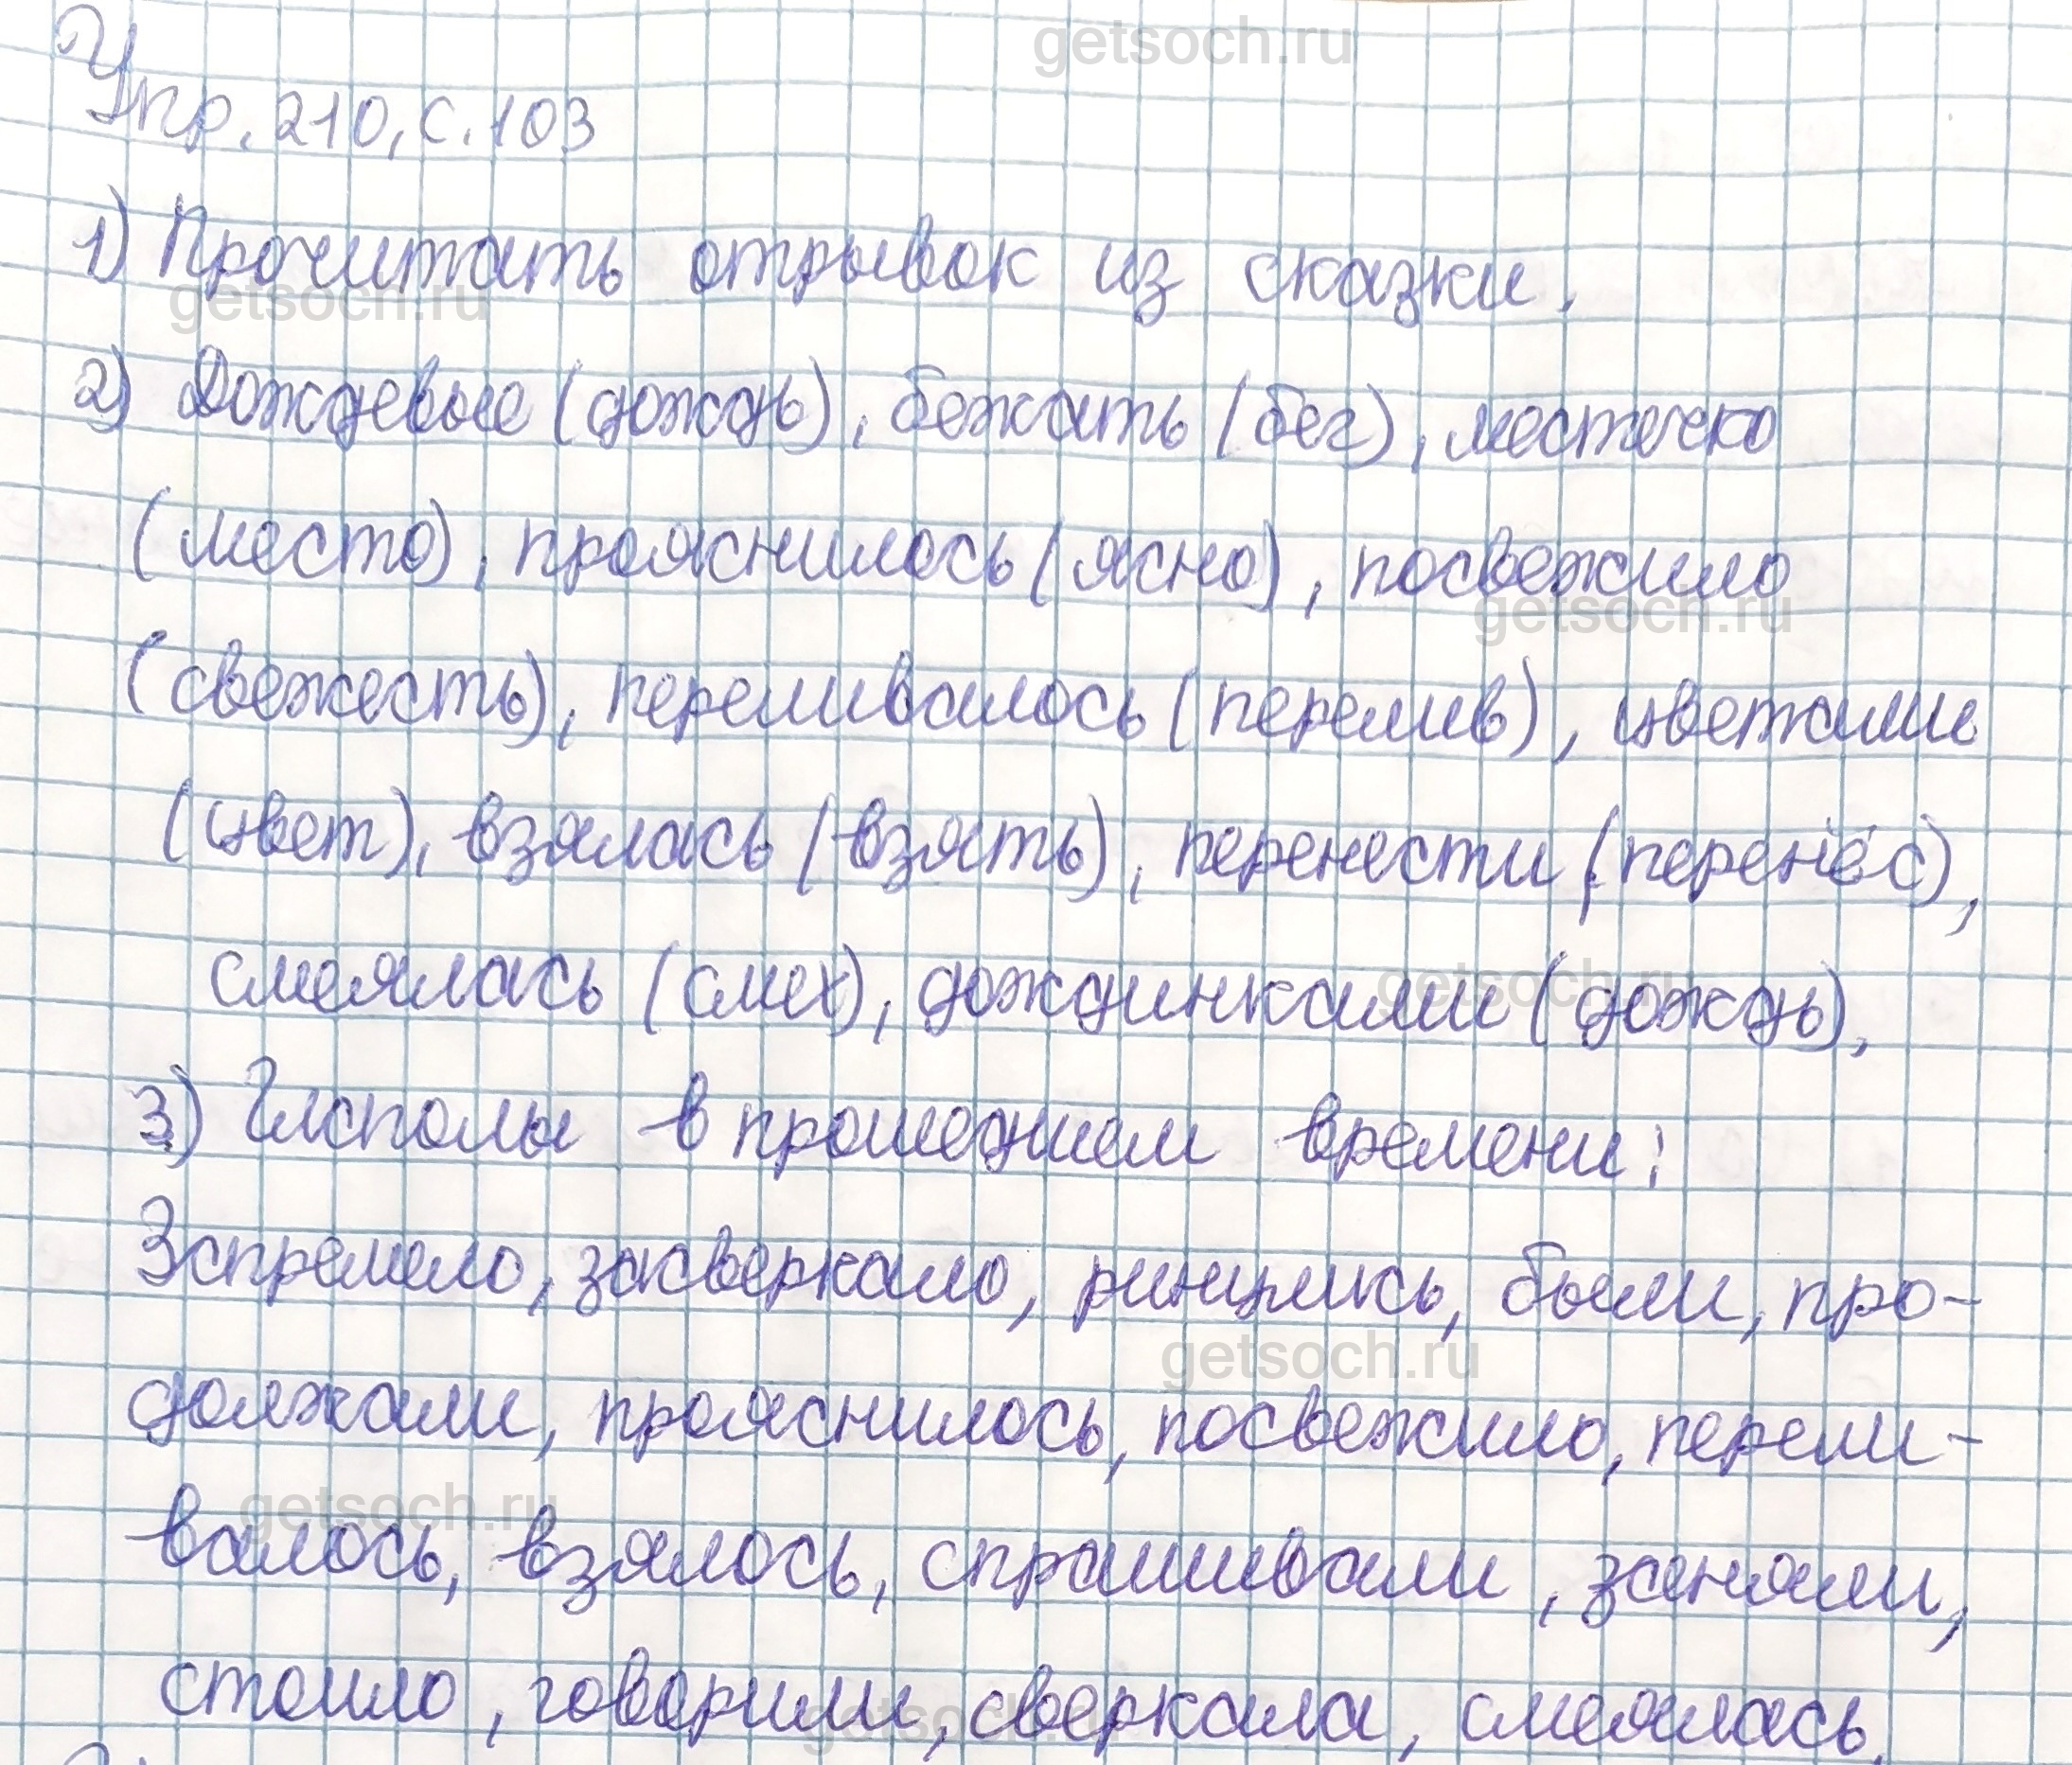 getsoch.ru
Упр. 210, с. 103
1) Прочитать отрывок из сказки.
getsoch.ru
2) Дождевые (дождь), бежать (бег), местечко
(место), прояснилось (ясно), посвежило
getsoch.ru
(свежесть), переливалось (перелив), цветами
(цвет), взялась (взять), перенести (перенёс),
смеялась (смех), дождинками (дождь),
getsoch.ru
3) Глаголы в прошедшем времени:
Загремело, засверкало, ринулись, были, про-
getsoch.ru
должали, прояснилось, посвежило, перели-
getsoch.ru
валось, взялось, спрашивали, заняли,
стоило, говорили, сверкала, смеялась.
getsoch.ru